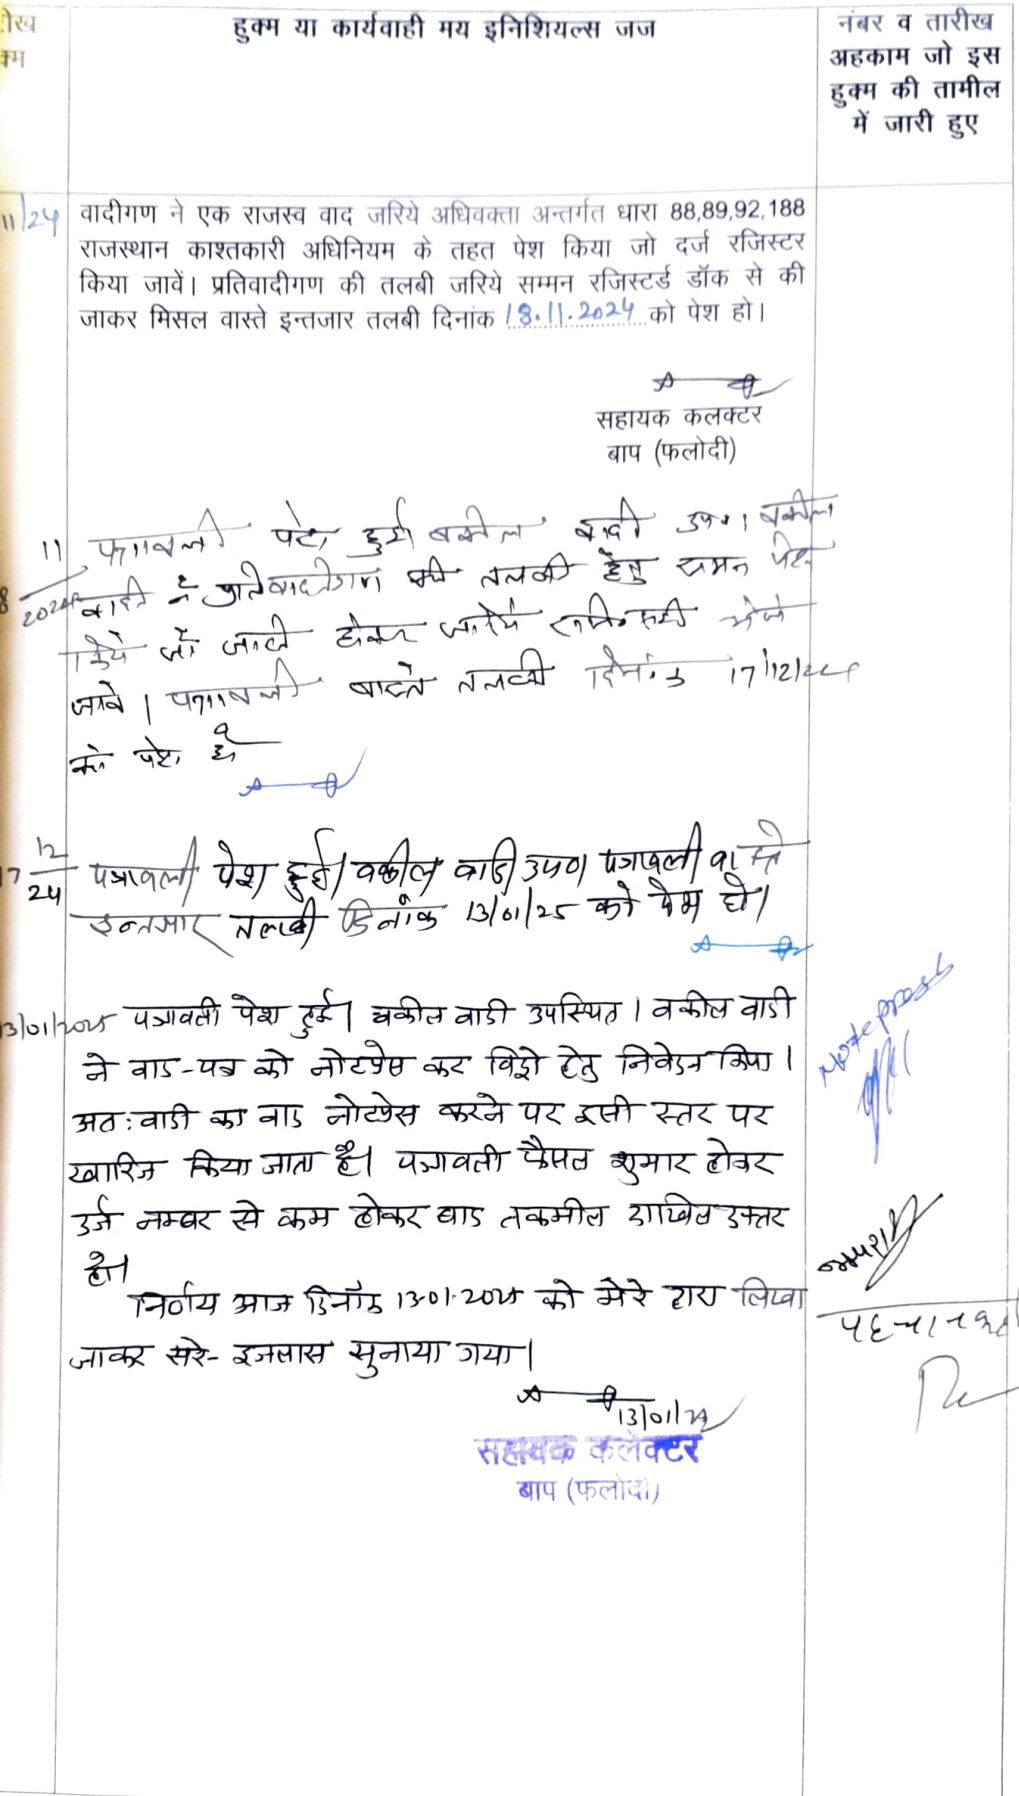 ेख
क्म
हुक्म या कार्यवाही मय इनिशियल्स जज
नंबर व तारीख
अहकाम जो इस
हुक्म की तामील
में जारी हुए
11/24
वादीगण ने एक राजस्व वाद जरिये अधिवक्ता अन्तर्गत धारा 88,89,92,188
राजस्थान काश्तकारी अधिनियम के तहत पेश किया जो दर्ज रजिस्टर
किया जावें। प्रतिवादीगण की तलबी जरिये सम्मन रजिस्टर्ड डॉक से की
जाकर मिसल वास्ते इन्तजार तलबी दिनांक 18.11.2024 को पेश हो।
सहायक कलक्टर
बाप (फलोदी)
8 11 2024
पत्रावली पेश हुई। वकील वादी उप0। वकील
वादी ने प्रतिवादीगण की तलबी हेतु समन पेश
किये जो जारी होकर जरिये भेजे
जावे। पत्रावली वास्ते तलबी दिनांक 17/12/24
को पेश हो
17 12 24
पत्रावली पेश हुई। वकील वादी उप0। पत्रावली वास्ते
इन्तजार तलबी दिनांक 13/01/25 को पेश हो।
13/01/2025 पत्रावली पेश हुई। वकील वादी उपस्थित। वकील वादी
ने वाद-पत्र को नोटप्रेस कर विड्रो हेतु निवेदन किया।
अत: वादी का वाद नोटप्रेस करने पर इसी स्तर पर
खारिज किया जाता है। पत्रावली फैसल शुमार होकर
दर्ज नम्बर से कम होकर बाद तकमील दाखिल दफ्तर
हो।
निर्णय आज दिनांक 13.01.2025 को मेरे द्वारा लिखा
जाकर सरे-इजलास सुनाया गया।
13/01/25
सहायक कलेक्टर
बाप (फलोदी)
Note press